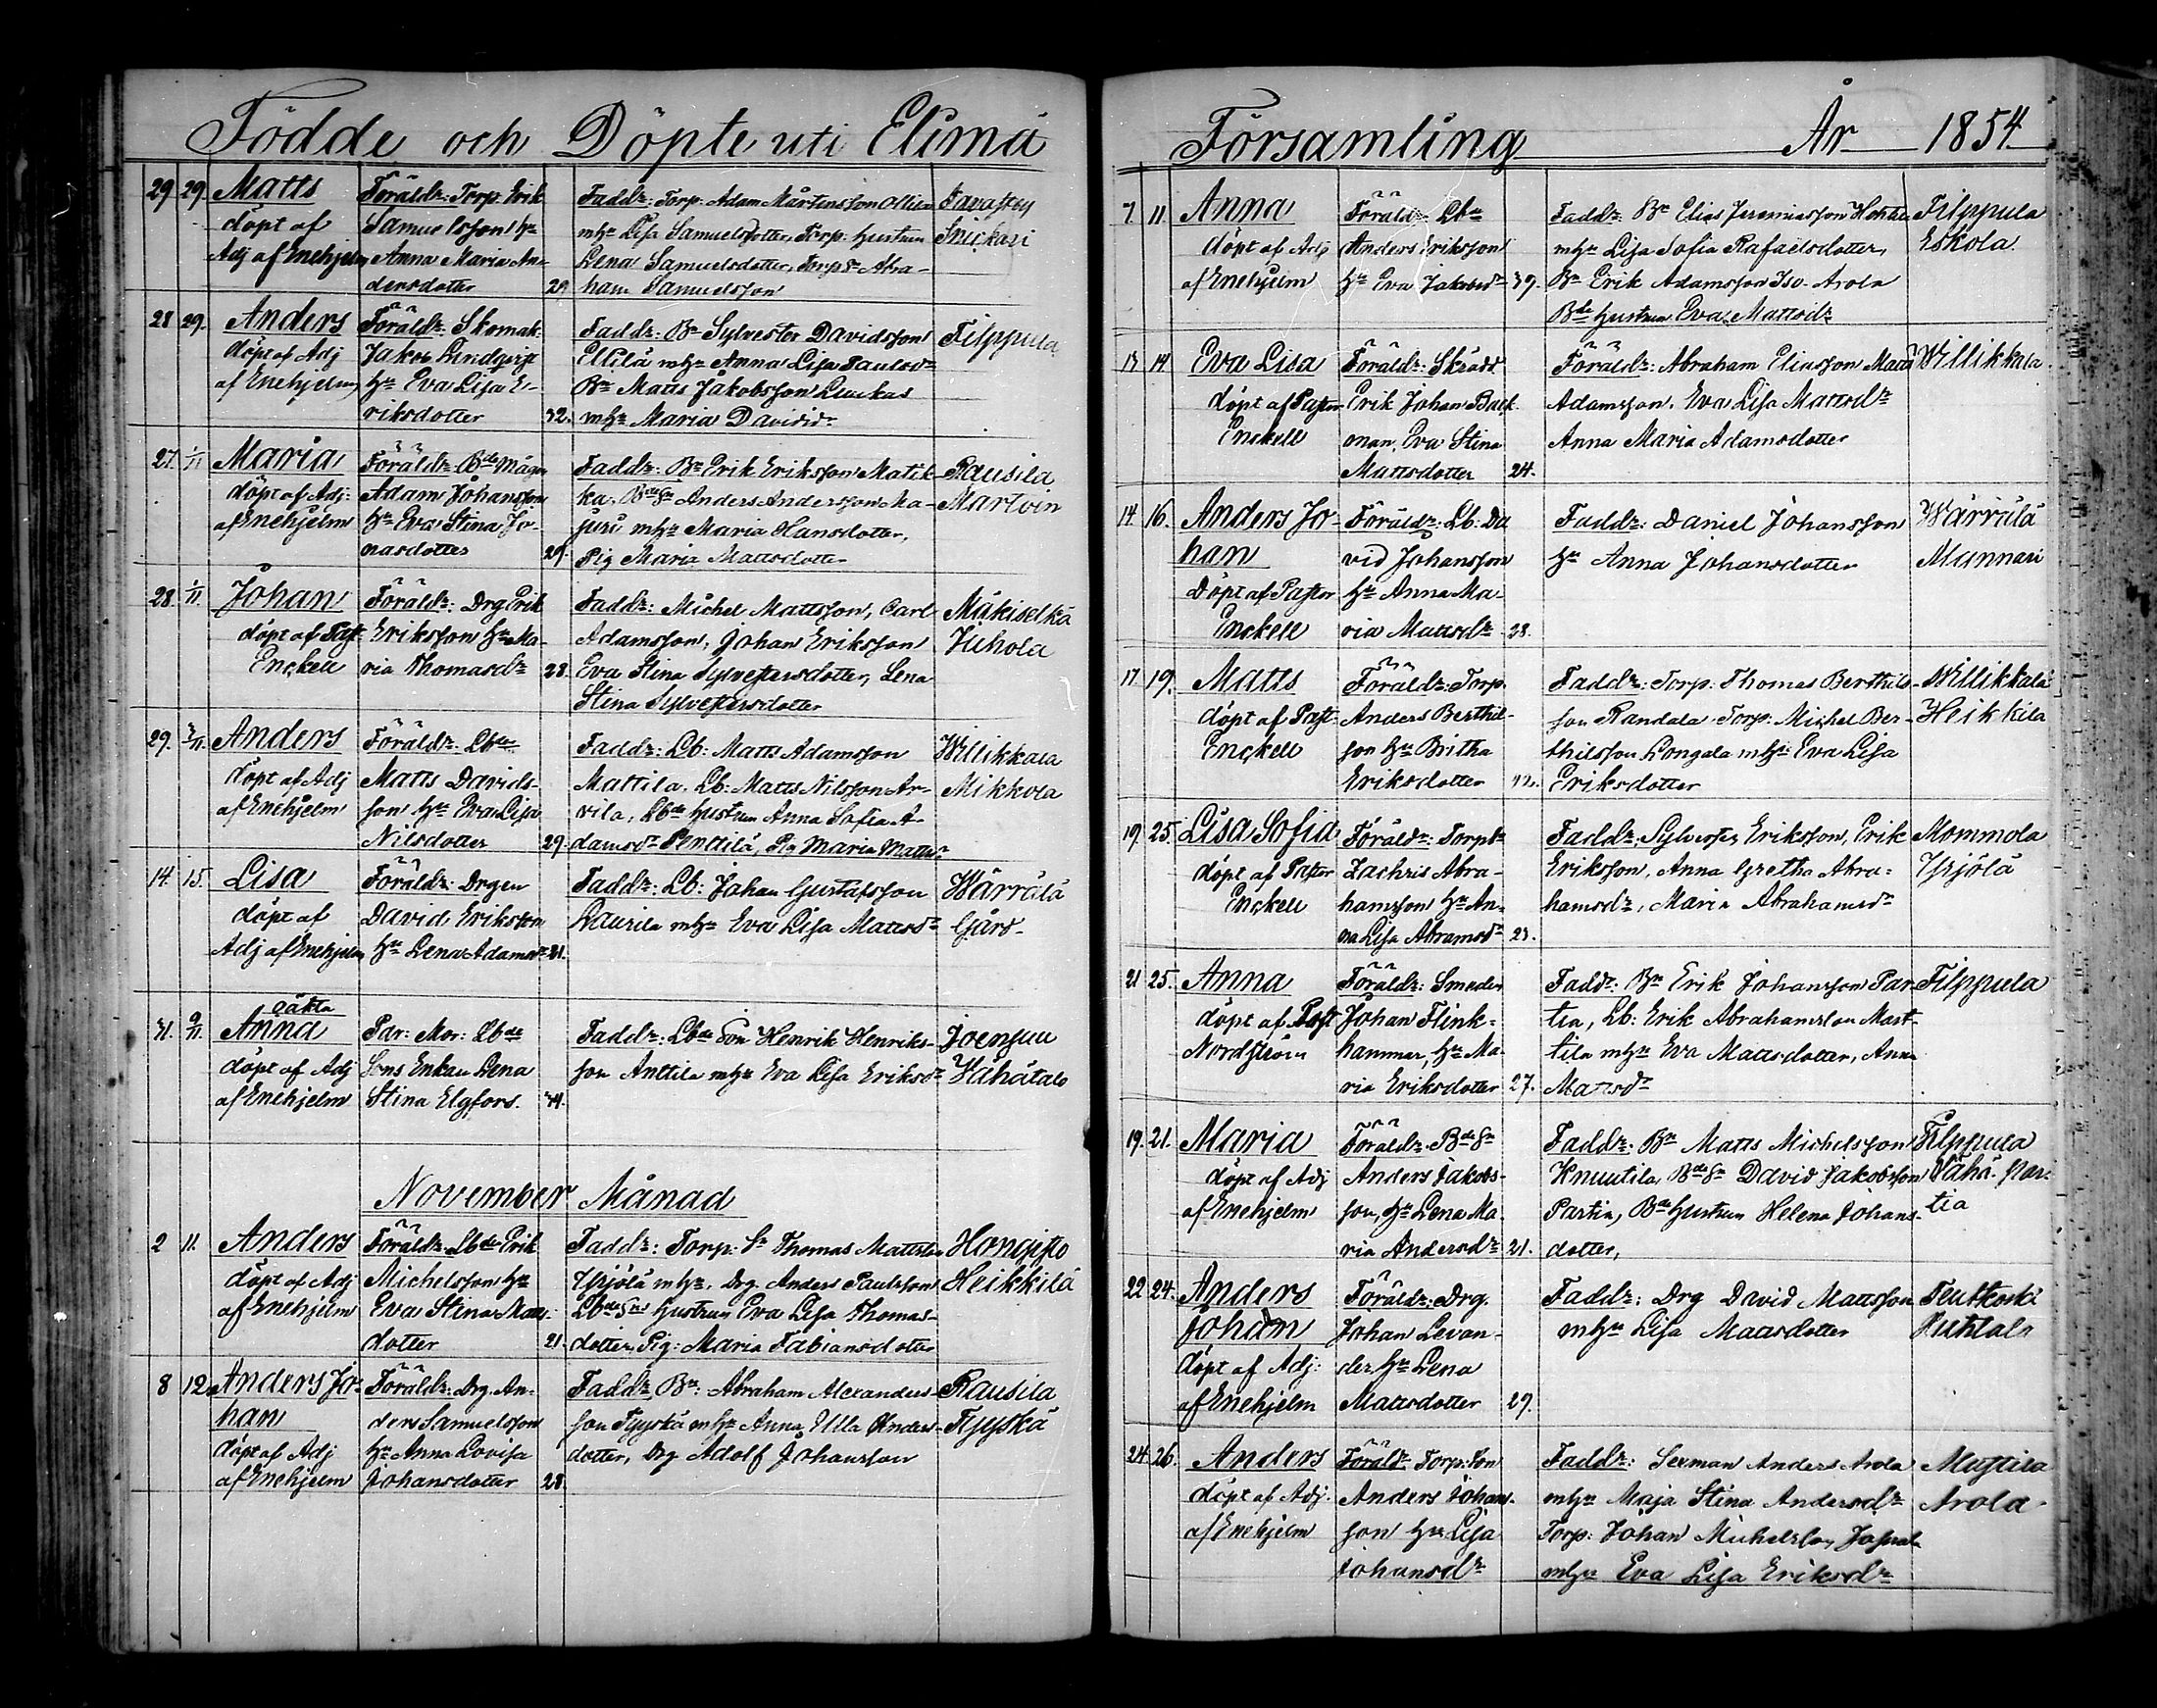 Födde och Döpte uti Elimä
29 29. Matts
döpt af
Adj af Enehjelm
Föräldr: Torp: Erik
Samuelsson hu
Anna Maria An-
dersdotter 29
Faddr: Torp: Adam Mårtensson
mhu Lisa Samuelsdotter, Torp: hustrun
Lena Samuelsdotter, Abra-
ham Samuelsson
28 29. Anders
döpt af Adj
af Enehjelm
Föräldr: Skomak.
Jakob Lindqvist
hu Eva Lisa E-
riksdotter 32.
Faddr: Bn Sylvester Davidsson
Eltilä mhu Anna Lisa Paulsdr
Bn Matts Jakobsson Luukas
mhu Maria Davidsdr
Filppula
27. 1/11 Maria
döpt af Adj:
af Enehjelm
Föräldr: Bde Mågen
Adam Johansson
hu Eva Stina Jo-
nasdotter 29.
Faddr: Bn Erik Eriksson Matik-
ka, Anders Andersson Ma-
juri mhu Maria Hansdotter,
Pig Maria Mattsdotter
Rausila
Martvin
28. 1/11. Johan
döpt af Past.
Enckell
Föräldr: Drg Erik
Eriksson hu Ma-
ria Thomasdr 28.
Faddr: Michel Mattsson, Carl
Adamsson, Johan Eriksson
Eva Stina Sylvestersdotter, Lena
Stina Sylvestersdotter
Mäkiselkä
Juhola
29. 2/11. Anders
döpt af Adj
af Enehjelm
Föräldr: Lbde
Matts Davids-
son hu Eva Lisa
Nilsdotter 29.
Faddr: Lb: Matts Adamsson
Mattila, Lb: Matts Nilsson Ar-
vila, Lbde hustrun Anna Sofia A-
damsdr Penttilä, Pig Maria Mattsdr
Willikkala
Mikkola
14. 15. Lisa
döpt af
Adj af Enehjelm
Föräldr: Drgen
David Eriksson
hu Lena Adamsdr 21.
Faddr: Lb: Johan Gustafsson
Laurila mhu Eva Lisa Mattsdr
Wärrälä
Gård
oäkta
31. 9/11. Anna
döpt af Adj
af Enehjelm
Par: Mor: Lbde
Sons Enkan Lena
Stina Elgfors.
Faddr: Lbde Son Henrik Henriks-
son Anttila mhu Eva Lisa Eriksdr
Joensuu
Wähätalo
November Månad
2 11. Anders
döpt af Adj
af Enehjelm
Föräldr: Lbde Erik
Michelsson hu
Eva Stina Matts-
dotter 21.
Faddr: Torp: Sn Thomas Mattsson
Yrjölä mhu. Drg. Anders Paulsson
Lbde Sns hustrun Eva Lisa Thomas-
dotter, Pig: Maria Fabiansdotter
Hongisto
Heikkilä
8 12. Anders Jo-
han
döpt af Adj
af Enehjelm
Föräldr: Drg. An-
ders Samuelsson
hu Anna Lovisa
Johansdotter 28.
Faddr Bn: Abraham Alexanders-
son Tyyskä mhu Anna Ulla Anders-
dotter, Drg Adolf Johansson
Rausila
Tyyskä
Församling År 1854
7. 11. Anna
döpt af Adj
af Enehjelm
Föräldr: Lbn
Anders Eriksson
hu Eva Jakobsdr 39.
Faddr: Bn Elias Jeremiasson
mhu Lisa Sofia Rafaelsdotter,
Bn Erik Adamsson Iso-Arola
Bde hustrun Eva Mattsdr
Filppula
Eskola
13 14 Eva Lisa
döpt af Pastor
Enckell
Föräldr: Skrädd.
Erik Johan Back-
man, Eva Stina
Mattsdotter 24.
Föräldr: Abraham Eliasson Matts
Adamsson, Eva Lisa Mattsdr
Anna Maria Adamsdotter
Willikkala.
14 16. Anders Jo-
han
Döpt af Pastor
Enckell
Föräldr: Lb: Da
vid Johansson
hu Anna Ma-
ria Mattsdr 28.
Faddr: Daniel Johansson
hu Anna Johansdotter
Wärrälä
Mannari
17 19. Matts
döpt af Past.
Enckell
Föräldr: Torp.
Anders Berthil-
son hu Britha
Eriksdotter
Faddr: Torp: Thomas Berthils-
son Randala, Torp: Michel Ber-
thilsson Longala mhu Eva Lisa
Eriksdotter
Willikkala
Heikkilä
19. 25. Lisa Sofia
döpt af Pastor
Enckell
Föräldr: Torpr
Zachris Abra-
hamsson hu An-
na Lisa Abramsdr 23.
Faddr: Sylvester Eriksson, Erik
Eriksson, Anna Gretha Abra-
hamsdr, Maria Abrahamsdr
Mommola
Yrjölä
21 25. Anna
döpt af Past
Nordström
Föräldr: Smeden
Johan Flink-
hammar, hu Ma-
ria Eriksdotter 27.
Faddr: Bn Erik Johansson Par-
tia, Lb: Erik Abrahamsson Mart-
tila mhu Eva Mattsdotter, Anna
Mattsdr
Filppula
19. 21. Maria
döpt af Adj
af Enehjelm
Föräldr: Bde Sn
Anders Jakobs-
son, hu Lena Ma-
ria Andersdr 21.
Faddr: Bn Matts Michelsson
Knuutila, Bde Sn David Jakobsson
Partia, Bde hustrun Helena Johans-
dotter,
Filppula
Vähä-par-
tia
22 24. Anders
Johan
döpt af Adj:
af Enehjelm
Föräldr: Drg.
Johan Levan-
der hu Lena
Mattsdotter 29.
Faddr: Drg David Mattsson
mhu Lisa Mattsdotter
Teutkoski
24 26. Anders
döpt af Adj.
af Enehjelm
Föräldr Torp: Son
Anders Johans-
son hu Lisa
Johansdr
Faddr: Sexman Anders Arola
mhu Maja Stina Andersdr
Torp: Johan Michelsson
mhu Eva Lisa Eriksdr
Mustila
Arola